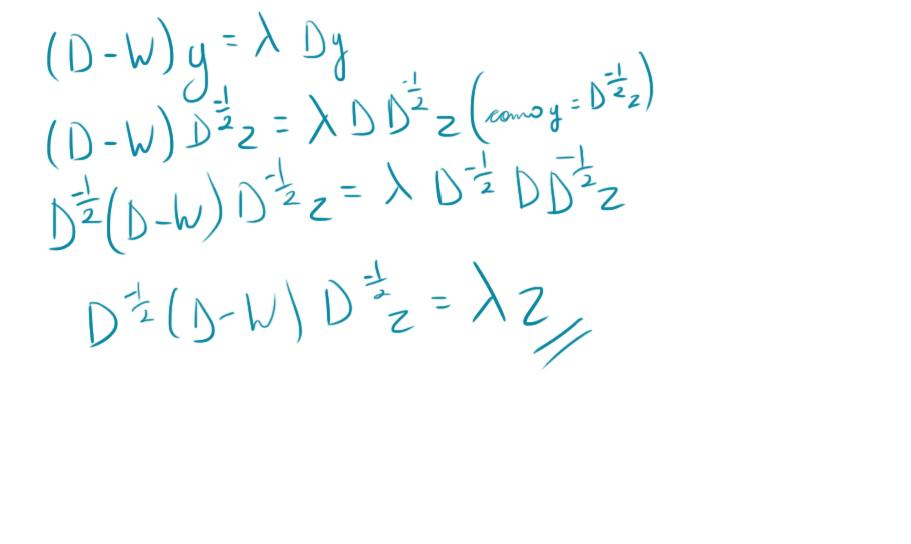 (D-W)y = λ Dy
(D-W) D^{-1/2} z = λ D D^{-1/2} z (como y = D^{-1/2} z)
D^{-1/2} (D-W) D^{-1/2} z = λ D^{-1/2} D D^{-1/2} z
D^{-1/2} (D-W) D^{-1/2} z = λ z